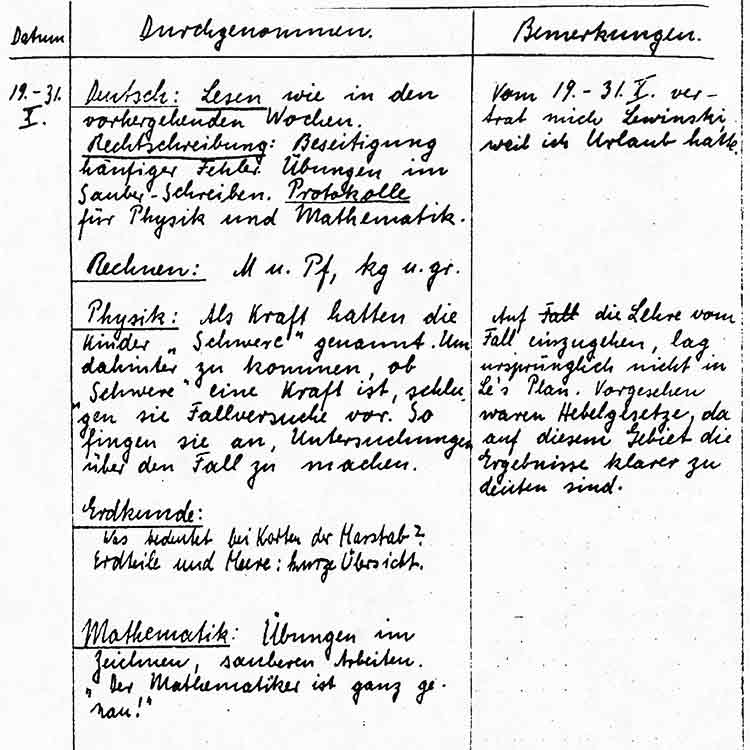 Datum
Durchgenommen.
Bemerkungen.
19.-31.
X.
Deutsch: Lesen wie in den
vorhergehenden Wochen.
Rechtschreibung: Beseitigung
häufiger Fehler. Übungen im
Sauber-Schreiben. Protokolle
für Physik und Mathematik.
Rechnen: M u. Pf, kg u. gr.
Physik: Als Kraft hatten die
Kinder „Schwere" genannt. Um
dahinter zu kommen, ob
„Schwere" eine Kraft ist, schlu-
gen sie Fallversuche vor. So
fingen sie an, Untersuchungen
über den Fall zu machen.
Erdkunde:
Was bedeutet bei Karten der Masstab?
Erdteile und Meere: kurze Übersicht.
Mathematik: Übungen im
Zeichnen, sauberen Arbeiten.
„Der Mathematiker ist ganz ge-
nau!"
Vom 19.-31. X. ver-
trat mich Lewinski,
weil ich Urlaub hatte.
Auf Fall die Lehre vom
Fall einzugehen, lag
ursprünglich nicht in
Le's Plan. Vorgesehen
waren Hebelgesetze, da
auf diesem Gebiet die
Ergebnisse klarer zu
deuten sind.